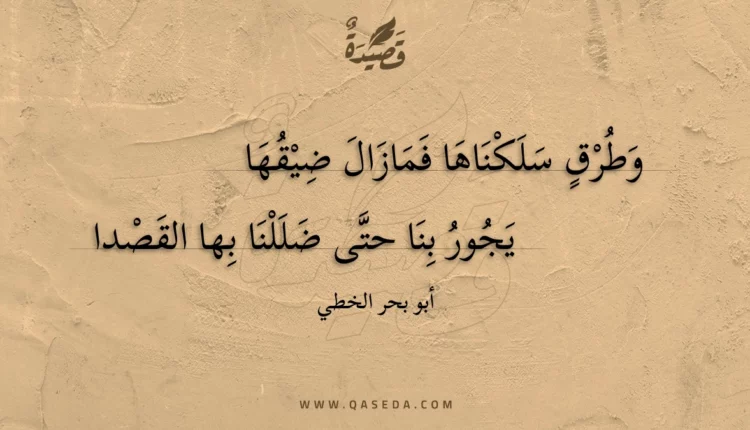 قَصِيْدَةٌ
وَطُرْقٍ سَلَكْنَاهَا فَمَازَالَ ضِيْقُهَا
يَجُورُ بِنَا حتَّى ضَلَلْنَا بِها القَصْدا
أبو بحر الخطي
WWW.QASEDA.COM